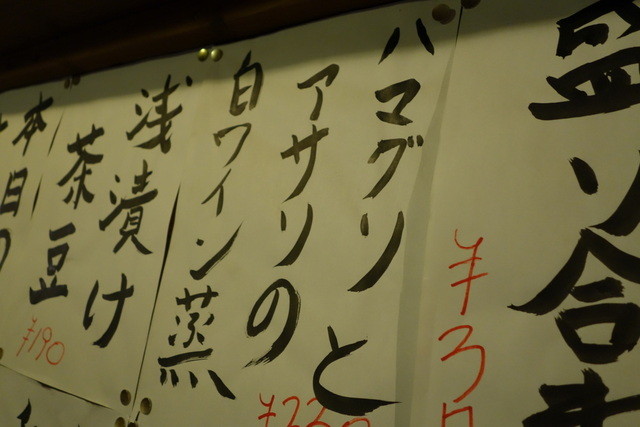 盛り合
¥3
ハマグリと
アサリの
白ワイン蒸
浅漬け
茶豆
¥190
本日の